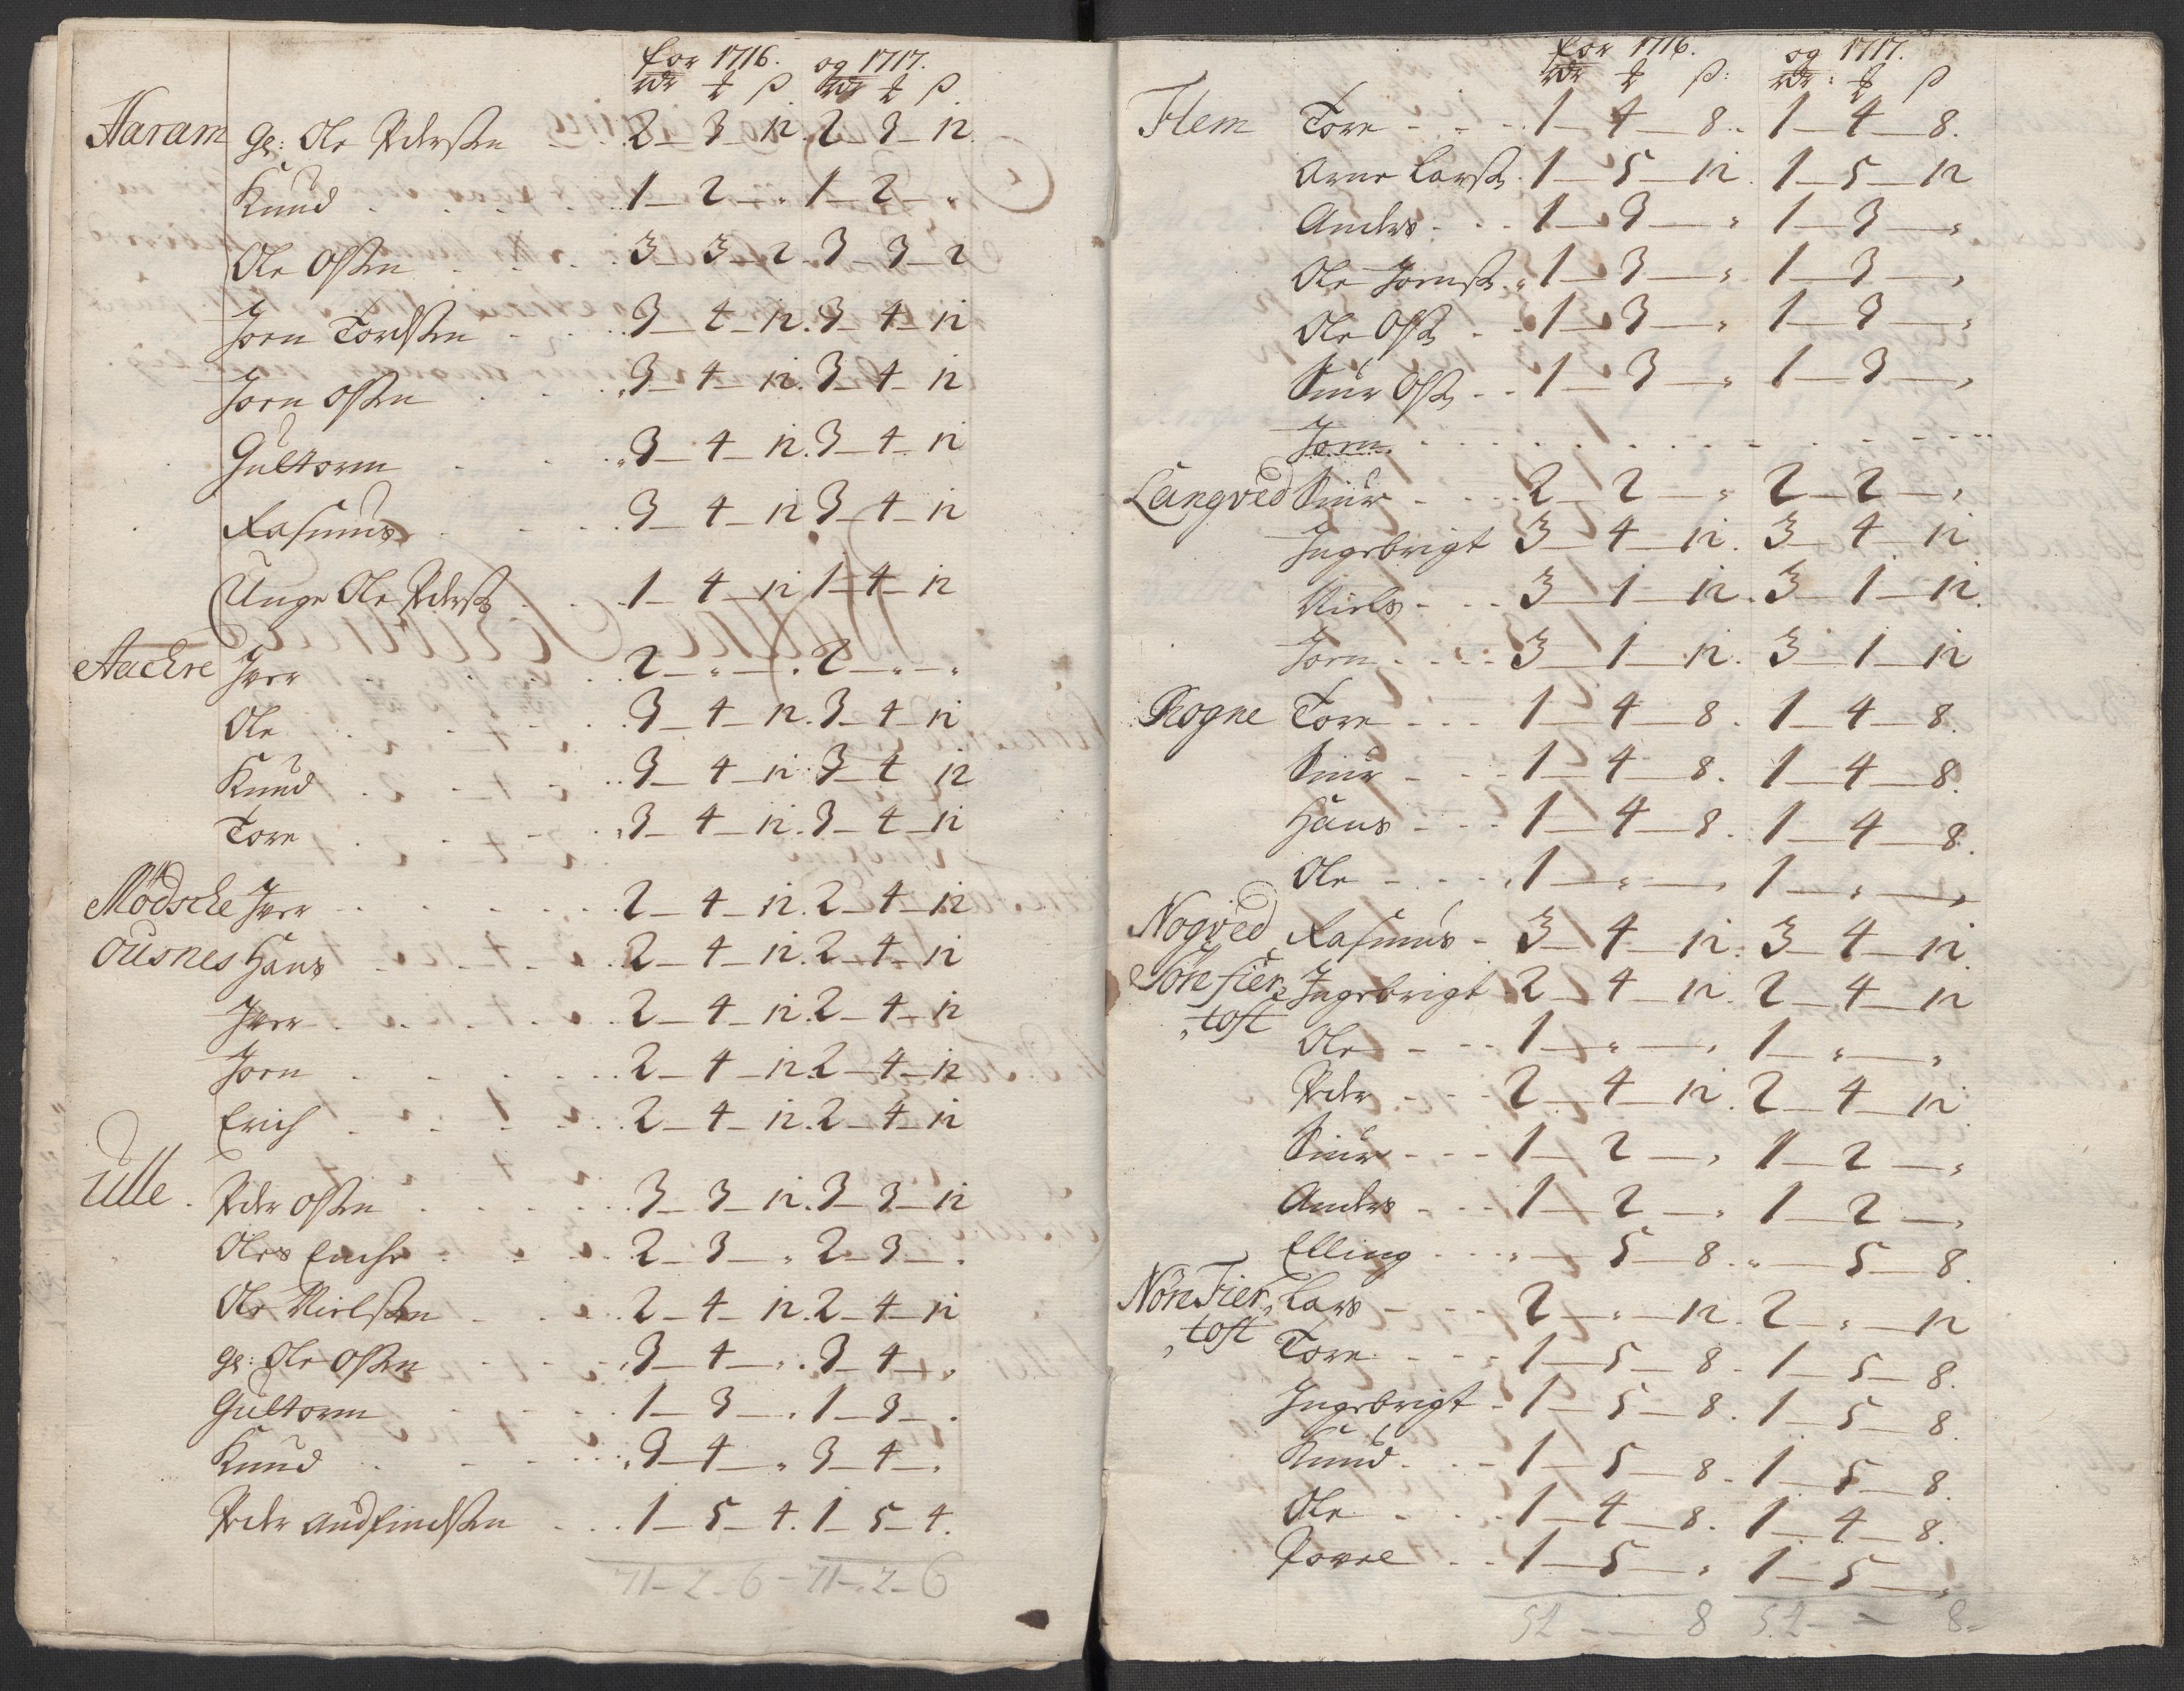 for 1716. og 1717.
rdr ₰ ß rdr ₰ ß
Haram Gl: Ole Pedersen 2 – 3 – 12. 2 – 3 – 12.
Knud 1 – 2 – „ 1 – 2 – „
Ole Olsen 3 – 3 – 2. 3 – 3 – 2
Joen Tordsen 3 – 4 – 12. 3 – 4 – 12
Joen Olsen 3 – 4 – 12. 3 – 4 – 12
Gultorm 3 – 4 – 12. 3 – 4 – 12
Rasmus 3 – 4 – 12 3 – 4 – 12
Unge Ole Peders: 1 – 4 – 12 1 – 4 – 12
Aachre Iver 2 – „ – „ 2 – „ – „
Ole 3 – 4 – 12. 3 – 4 – 12
Knud 3 – 4 – 12. 3 – 4 – 12
Tore 3 – 4 – 12. 3 – 4 – 12
Mödsche Iver 2 – 4 – 12. 2 – 4 – 12
Ousnes Hans 2 – 4 – 12. 2 – 4 – 12
Iver 2 – 4 – 12. 2 – 4 – 12
Joen 2 – 4 – 12. 2 – 4 – 12
Erich 2 – 4 – 12. 2 – 4 – 12
Ulle. Peder Olsen 3 – 3 – 12. 3 – 3 – 12
Oles Enche 2 – 3 – „ 2 – 3 – „
Ole Nielsen 2 – 4 – 12. 2 – 4 – 12
Gl: Ole Olsen 3 – 4 – „ 3 – 4 – „
Gultorm 1 – 3 – „ 1 – 3 – „
Knud 3 – 4 – „ 3 – 4 – „
Peder Andfindsen 1 – 5 – 4. 1 – 5 – 4.
71 – 2 – 6 – 71 – 2 – 6
for 1716. og 1717.
rdr ₰ ß: rdr: ₰ ß
Flem Tore 1 – 4 – 8. 1 – 4 – 8.
Arne Lars: 1 – 5 – 12. 1 – 5 – 12
Anders 1 – 3 – „ 1 – 3 – „
Ole Joens: 1 – 3 – „ 1 – 3 – „
Ole Ols: 1 – 3 – „ 1 – 3 – „
Siur Ols: 1 – 3 – „ 1 – 3 – „
Joen
Langved Siur 2 – 2 – „ 2 – 2 – „
Ingebrigt 3 – 4 – 12. 3 – 4 – 12
Niels 3 – 1 – 12. 3 – 1 – 12.
Joen 3 – 1 – 12. 3 – 1 – 12
Rogne Tore 1 – 4 – 8. 1 – 4 – 8.
Siur 1 – 4 – 8. 1 – 4 – 8.
Hans 1 – 4 – 8. 1 – 4 – 8.
Ole 1 – „ – „ 1 – „ – „
Nogved Rasmus 3 – 4 – 12. 3 – 4 – 12.
Söre fier, Ingebrigt 2 – 4 – 12. 2 – 4 – 12
„toft Ole 1 – „ – „ 1 – „ – „
Peder 2 – 4 – 12. 2 – 4 – 12
Siur 1 – 2 – „ 1 – 2 – „
Anders 1 – 2 – „ 1 – 2 – „
Elling „ – 5 – 8. „ – 5 – 8.
Nöre Fier, Lars 2 – „ – 12. 2 – „ – 12
„toft Tore 1 – 5 – 8. 1 – 5 – 8.
Ingebrigt 1 – 5 – 8. 1 – 5 – 8.
Knud 1 – 5 – 8. 1 – 5 – 8.
Ole 1 – 4 – 8. 1 – 4 – 8.
Povel 1 – 5 – „ 1 – 5 – „
52 – – 8 52 – – 8